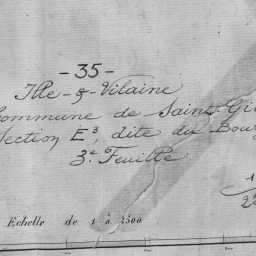 - 35 -
Ille - & - Vilaine
Commune de Saint-Gi
Section E³, dite du Bou
3.e Feuille
1
2
Echelle de 1 à 2500